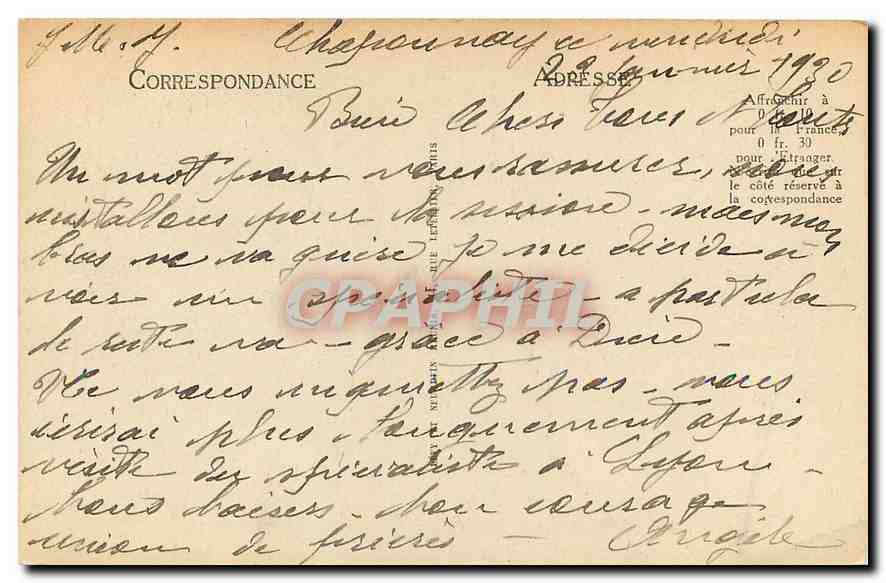 J. M. J. Chaponnay ce vendredi
1930
CORRESPONDANCE
ADRESSE
Bien Chers tous
Affranchir à
0 fr. 10
pour la France,
0 fr. 30
pour l'Etranger
le côté réservé à
la correspondance
Un mot pour vous rassurer, nous
installons pour la mission - mais mon
bras ne va guère je me décide à
voir un spécialiste - à part cela
le reste va - grâce à Dieu -
Ne vous inquiettez pas - vous
écrirai plus longuement après
visite du spécialiste à Lyon -
bons baisers - bon courage
union de prières - Angèle
RUE
PARIS
CPAPHIL